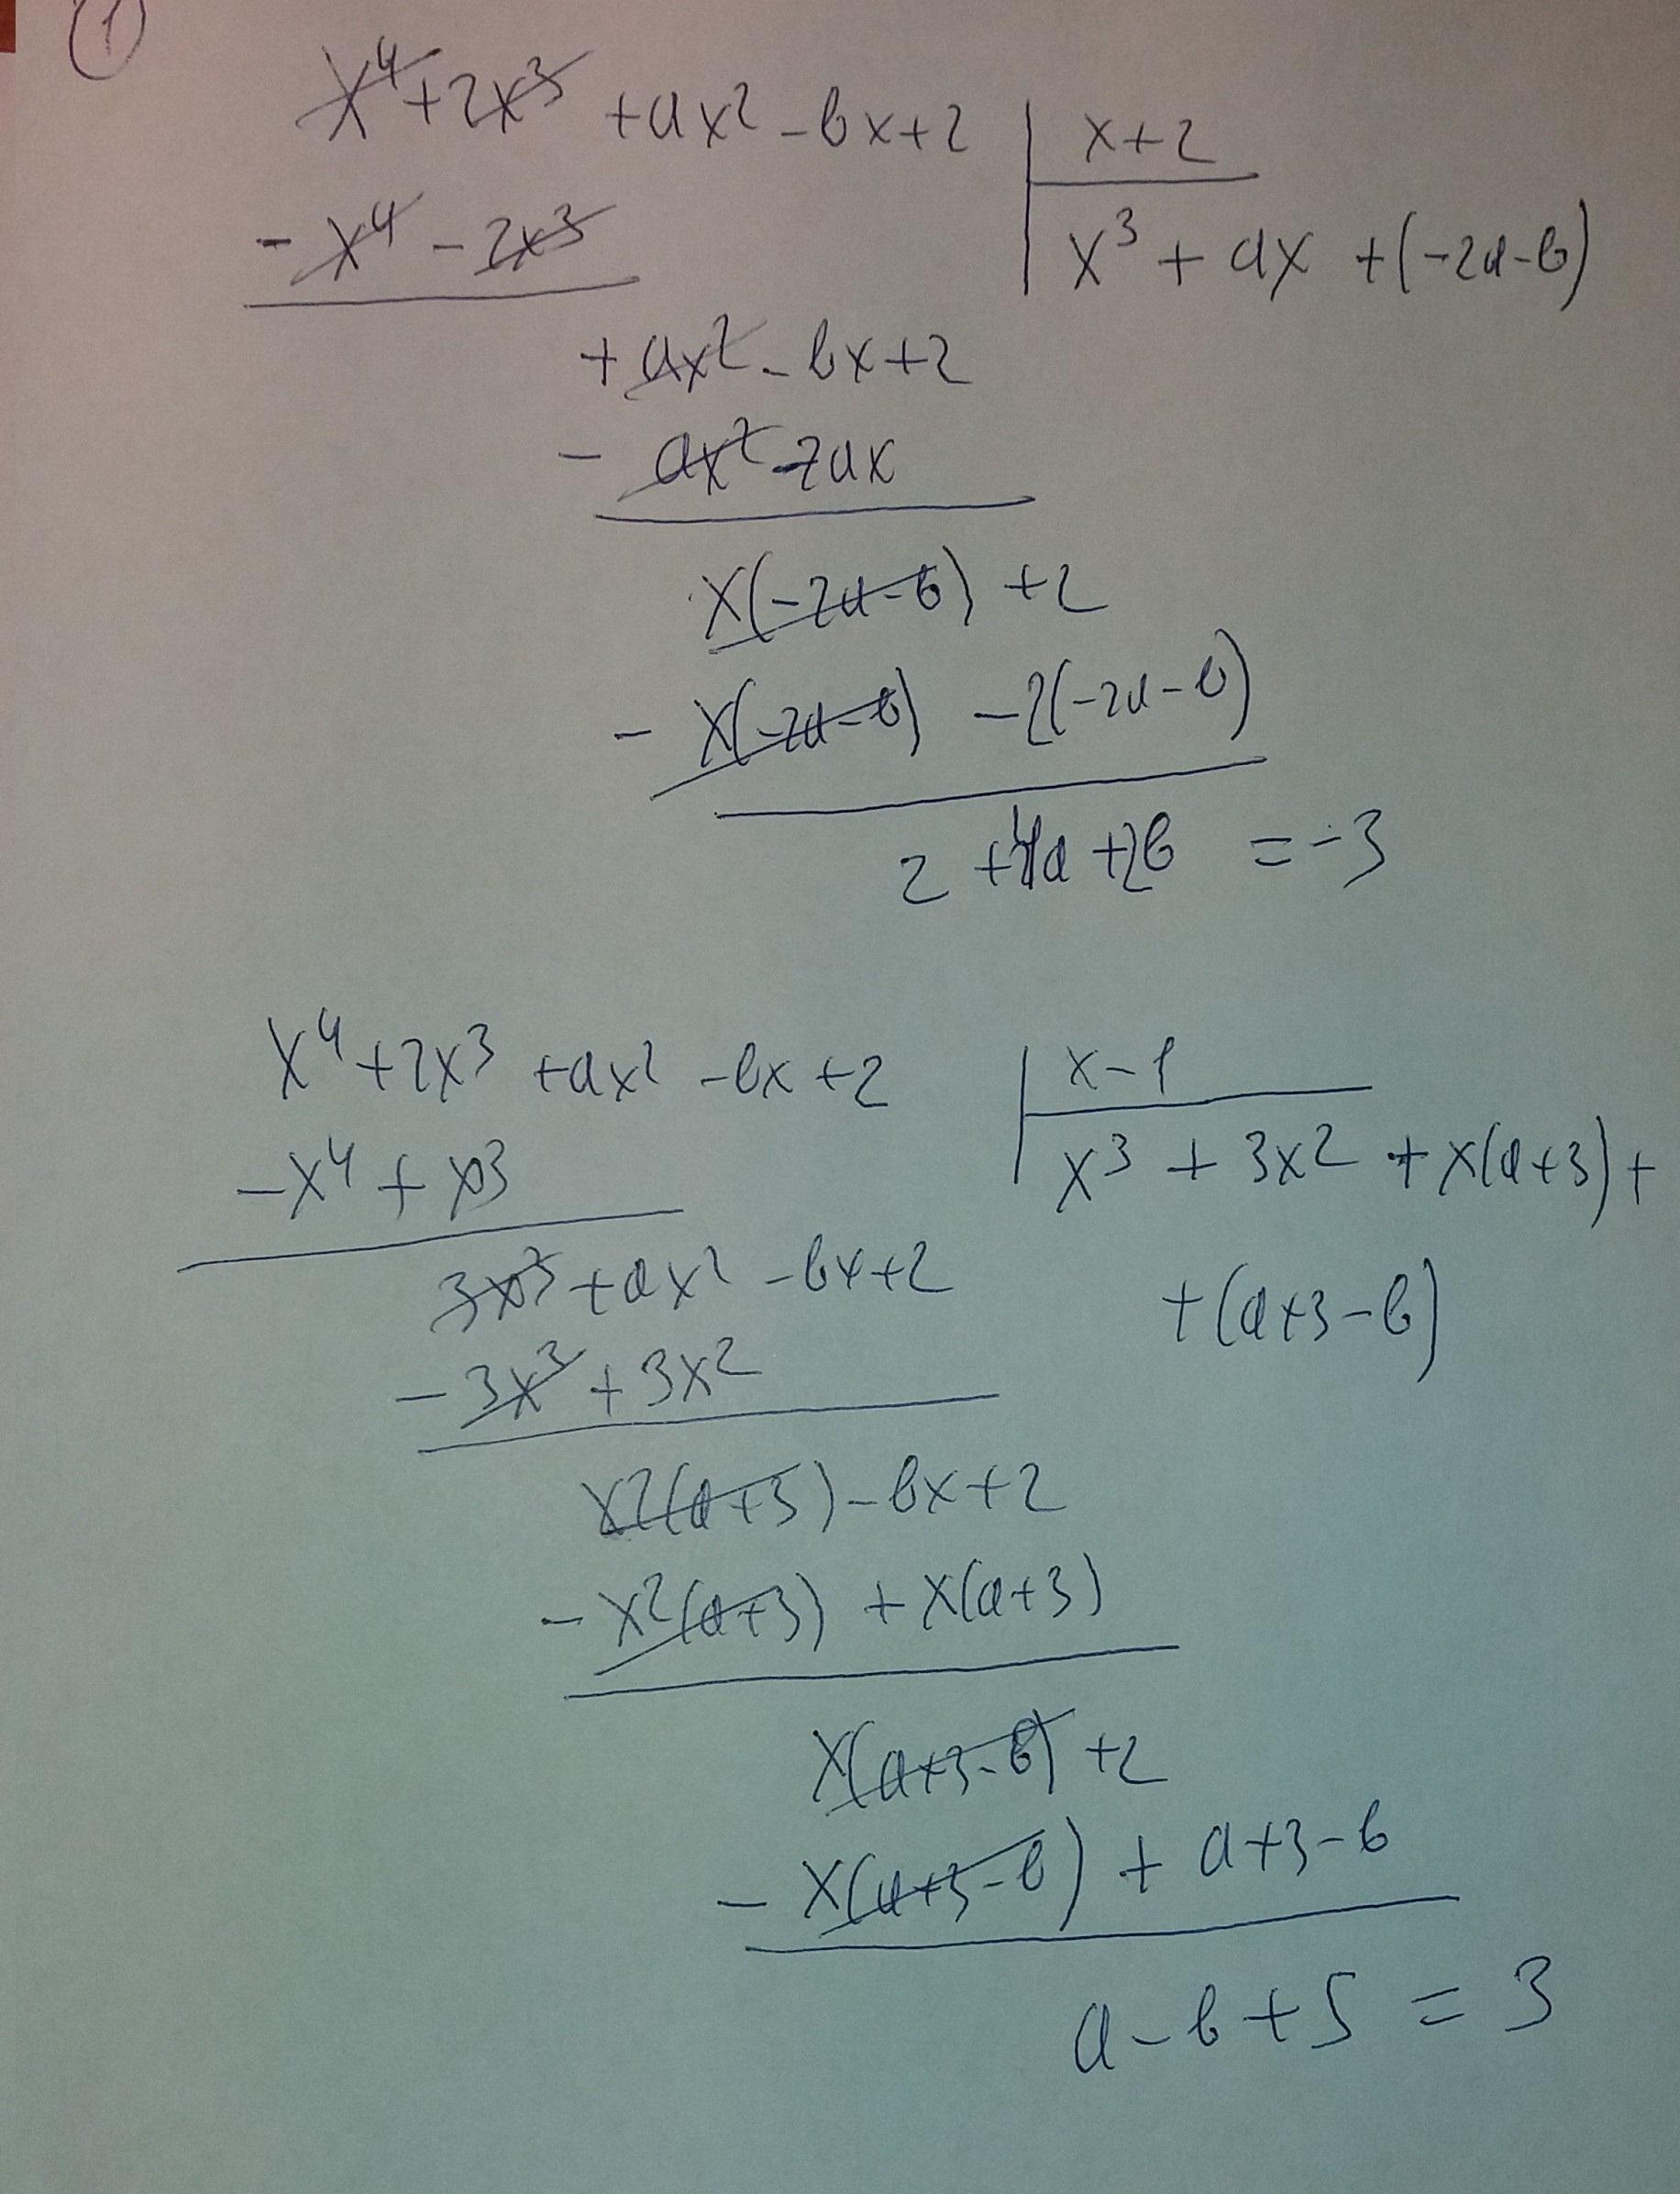 1
x⁴+2x³ +ax² -bx+2 | x+2
-x⁴ -2x³ | x³ + ax +(-2a-b)
+ax² -bx+2
- ax² -2ax
x(-2a-b) +2
- x(-2a-b) -2(-2a-b)
2 +4a +2b = -3
x⁴+2x³ +ax² -bx +2 | x-1
-x⁴ + x³ | x³ + 3x² + x(a+3)+
3x³ +ax² -bx+2 +(a+3-b)
- 3x³ + 3x²
x²(a+3) -bx+2
- x²(a+3) + x(a+3)
x(a+3-b) +2
- x(a+3-b) + a+3-b
a-b+5 = 3